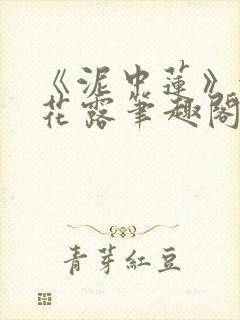 《泥中蓮》
花露筆趣閣
青芽紅豆